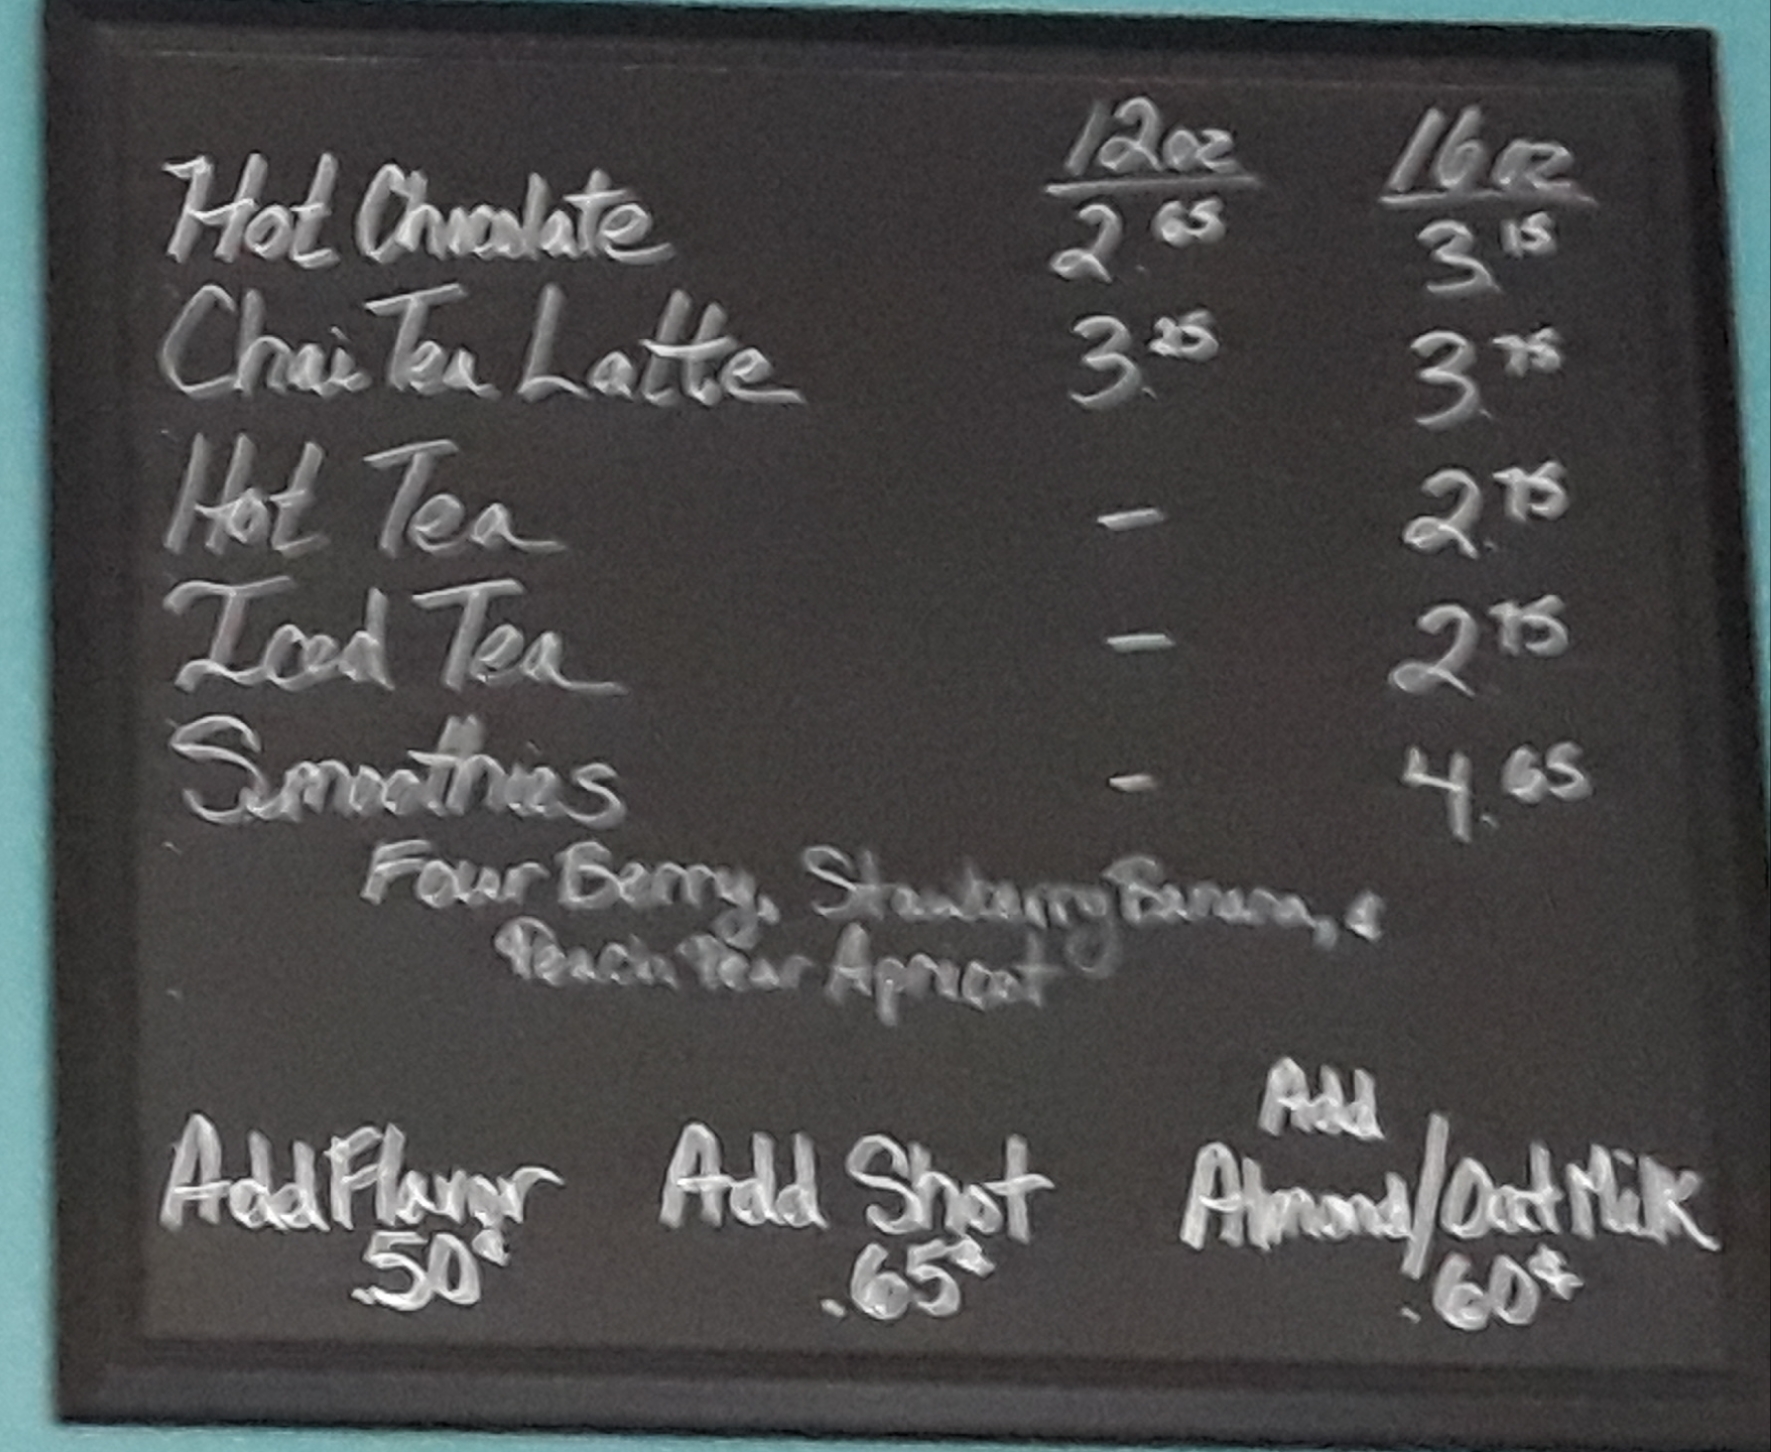 12oz 16oz
Hot Chocolate 2.65 3.15
Chai Tea Latte 3.25 3.75
Hot Tea - 2.75
Iced Tea - 2.75
Smoothies - 4.65
Four Berry, Strawberry Banana, &
Peach Pear Apricot
Add Flavor .50¢
Add Shot .65¢
Add
Almond/Oat Milk
.60¢